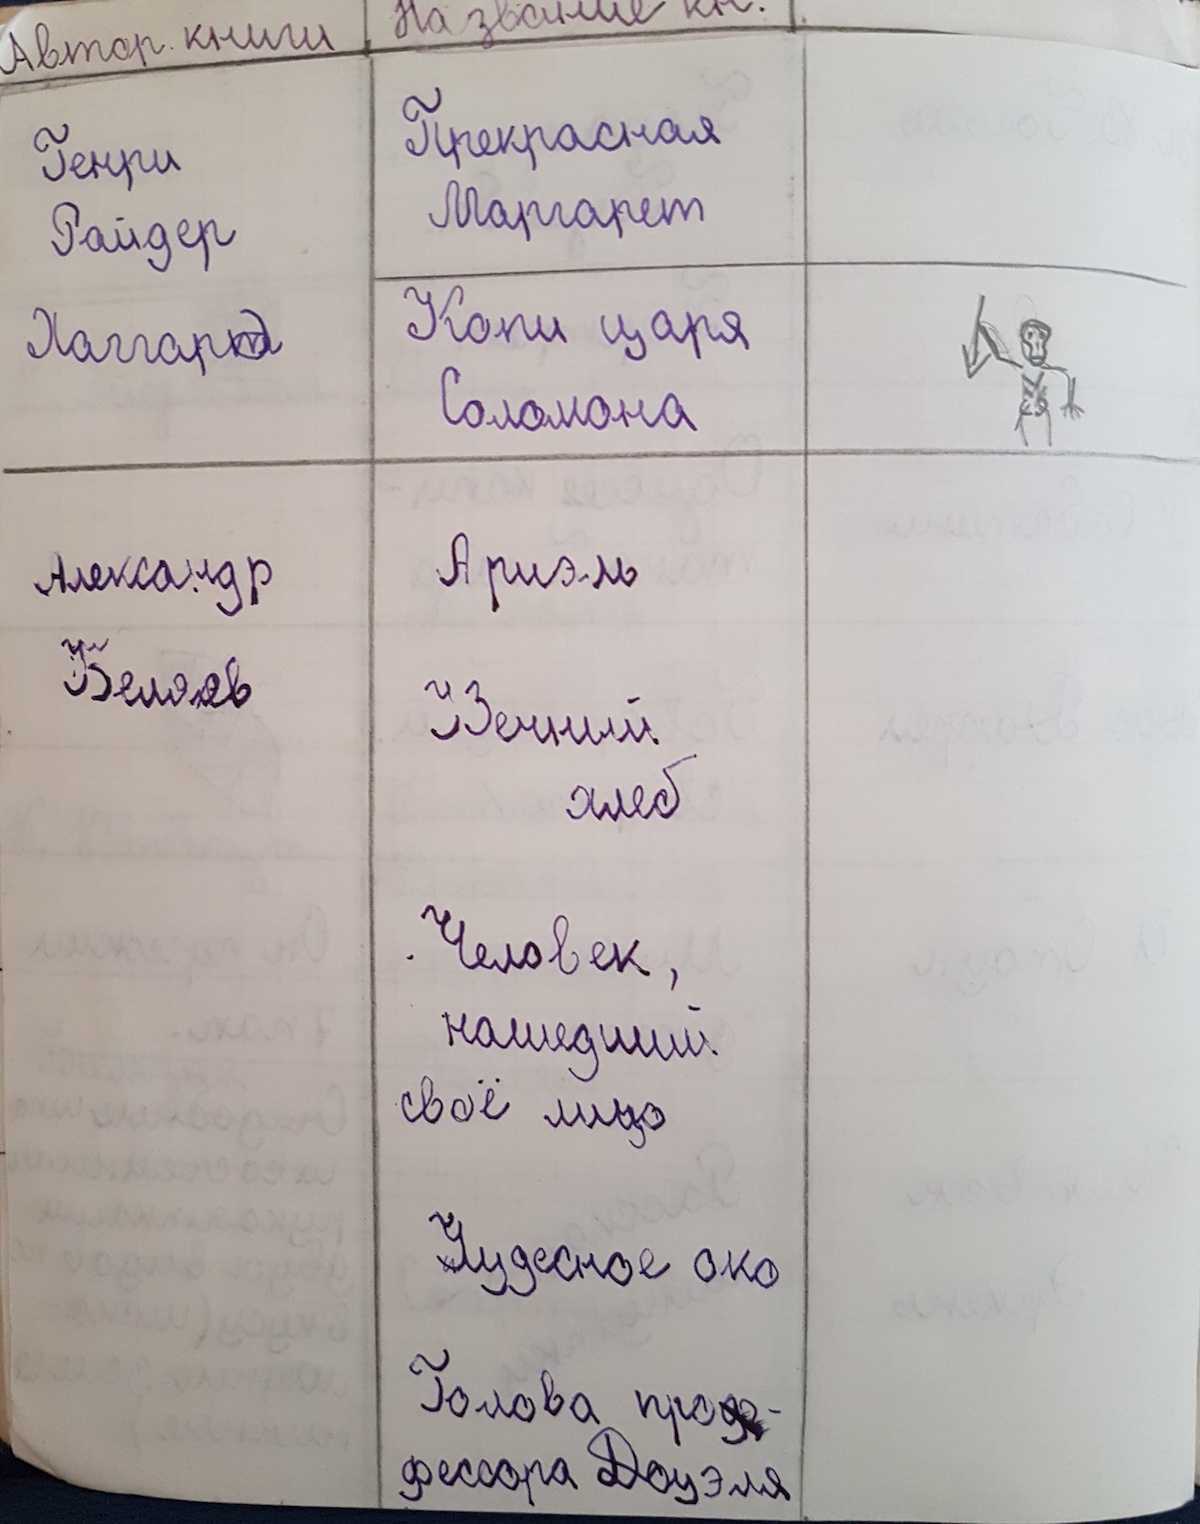 Автор книги
Название кн.
Генри
Райдер
Хаггард
Прекрасная
Маргарет
Копи царя
Соломона
Александр
Беляев
Ариэль
Вечний
хлеб
Человек,
нашедший
своё лицо
Чудесное око
Голова про-
фессора Доуэля